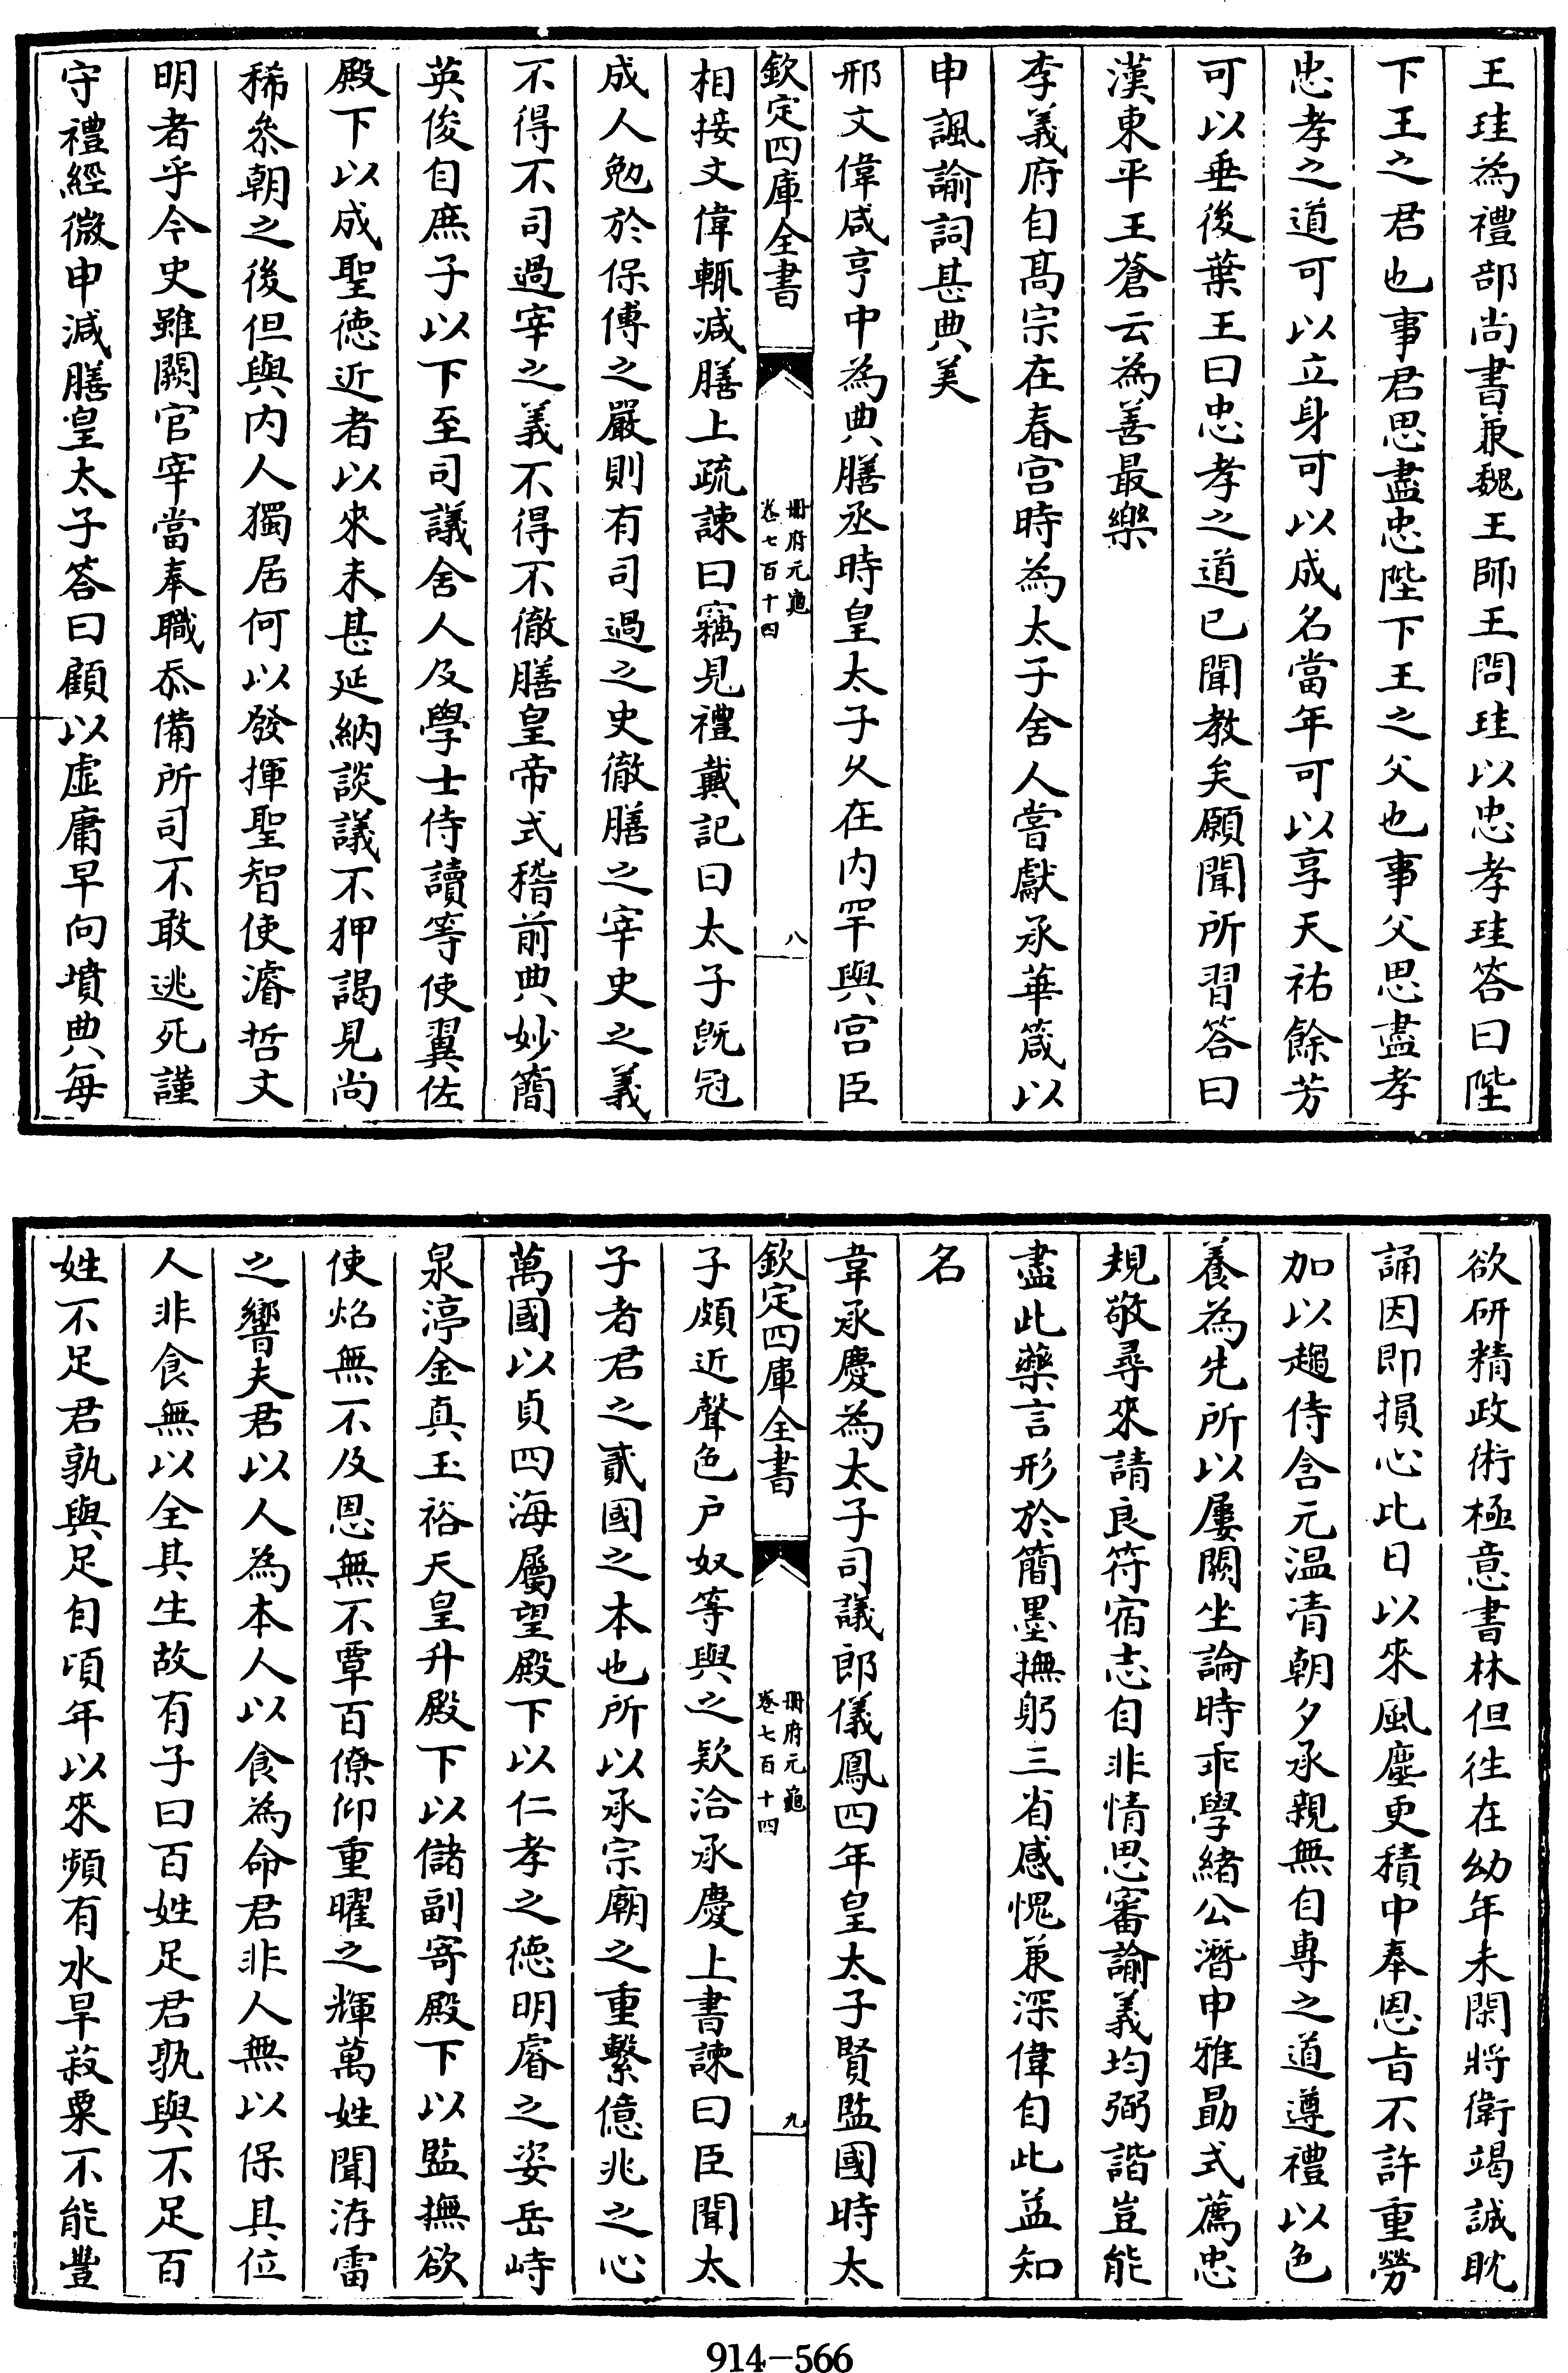 王珪為禮部尚書兼魏王師王問珪以忠孝珪答曰陛
下王之君也事君思盡忠陛下王之父也事父思盡孝
忠孝之道可以立身可以成名當年可以享天祐餘芳
可以垂後葉王曰忠孝之道已聞教矣願聞所習答曰
漢東平王蒼云為善最樂
李義府自髙宗在春宫時為太子舍人嘗獻承華箴以
申諷諭詞甚典美
邢文偉咸亨中為典膳丞時皇太子乆在内罕與宫臣
欽定四庫全書
冊府元龜
卷七百十四
八
相接文偉輒減膳上疏諫曰竊見禮戴記曰太子旣冠
成人勉於保傅之嚴則有司過之史徹膳之宰史之義
不得不司過宰之義不得不徹膳皇帝式稽前典妙簡
英俊自庶子以下至司議舍人及學士侍讀等使翼佐
殿下以成聖徳近者以來未甚延納談議不狎謁見尚
稀叅朝之後但與内人獨居何以發揮聖智使濬哲文
明者乎今史雖闕官宰當奉職忝備所司不敢逃死謹
守禮經微申減膳皇太子答曰顧以虛庸早向墳典每
欲研精政術極意書林但徃在幼年未閑將衛竭誠耽
誦因即損心比日以來風塵更積中奉恩㫖不許重勞
加以趨侍含元温凊朝夕承親無自專之道遵禮以色
養為先所以屢闕坐論時乖學緒公潛申雅勗式薦忠
規敬尋來請良符宿志自非情思審諭義均弼諧豈能
盡此藥言形於簡墨撫躬三省感愧兼深偉自此益知
名
韋承慶為太子司議郎儀鳳四年皇太子賢監國時太
欽定四庫全書
冊府元龜
卷七百十四
九
子頗近聲色戸奴等與之欵洽承慶上書諫曰臣聞太
子者君之貳國之本也所以承宗廟之重繫億兆之心
萬國以貞四海屬望殿下以仁孝之徳明睿之姿岳峙
泉渟金真玉裕天皇升殿下以儲副寄殿下以監撫欲
使焰無不及恩無不覃百僚仰重曜之輝萬姓聞洊雷
之響夫君以人為本人以食為命君非人無以保其位
人非食無以全其生故有子曰百姓足君孰與不足百
姓不足君孰與足自頃年以來頻有水旱菽粟不能豐
914-566